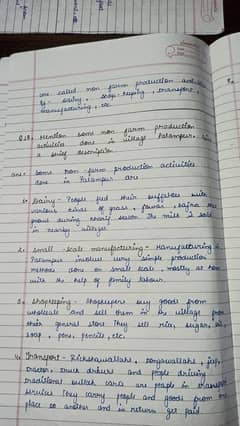 are called non farm production activities
Eg - dairy, shop keeping, transport,
manufacturing, etc.
Q.8. Mention some non farm production
activities done in village Palampur.
a brief description.
ans. Some non-farm production activities
done in Palampur are
1. Dairy - People fed their buffalos with
various kinds of grass, fowar, bajra that
grows during kharif season. The milk is sold
in nearby villages
2. Small-scale manufacturing - Manufacturing in
Palampur involves very simple production
methods done on small scale, mostly at home
with the help of family labour.
3. Shopkeeping - shopkeepers buy goods from
wholesale and sell them in the village from
their general store. They sell rice, sugar, oil,
soap, pens, pencils, etc.
4. Transport - Rickshawallahs, tongawallahs, jeep,
tractor, truck drivers and people driving
traditional bullock carts are people in transport
services. They carry people and goods from one
place to another and in return get paid.